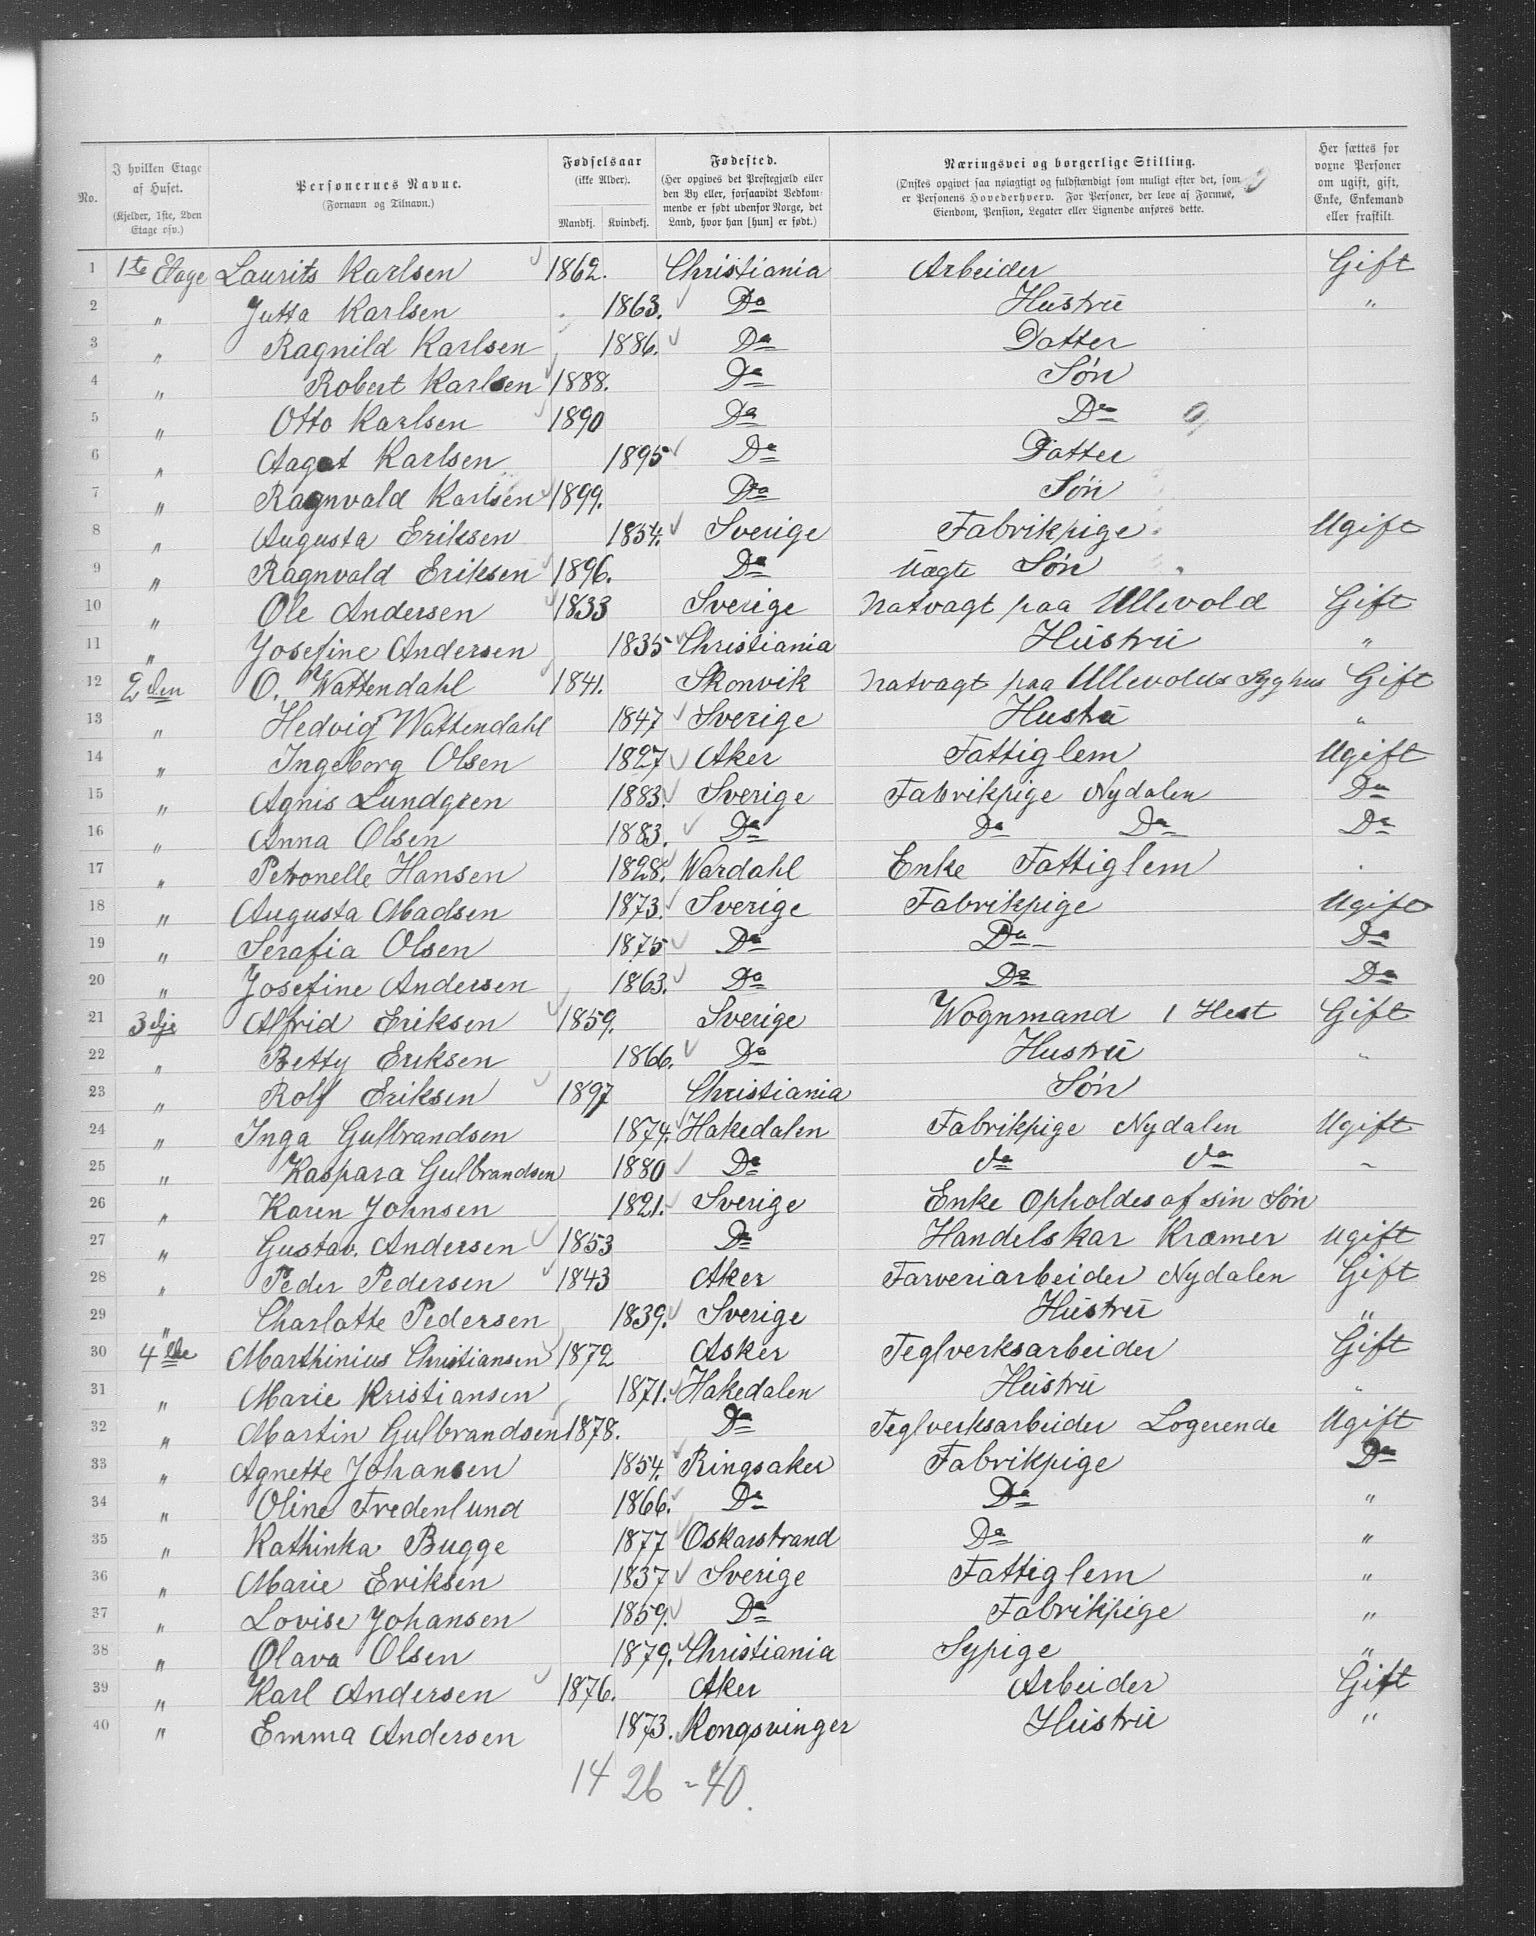 No. | I hvilken Etage af Huset. (Kjelder, 1ste, 2den Etage osv.) | Personernes Navne. (Fornavn og Tilnavn.) | Fødselsaar (ikke Alder). Mandkj. Kvindekj. | Fødested. (Her opgives det Prestegjæld eller den By eller, forsaavidt Vedkommende er født udenfor Norge, det Land, hvor han [hun] er født.) | Næringsvei og borgerlige Stilling. (Ønskes opgivet saa nøiagtigt og fuldstændigt som muligt efter det, som er Personens Hovederhverv. For Personer, der leve af Formue, Eiendom, Pension, Legater eller Lignende anføres dette. | Her sættes for voxne Personer om ugift, gift, Enke, Enkemand eller fraskilt.
1 1ste Etage Laurits Karlsen 1862. Christiania Arbeider Gift
2 " Jutta Karlsen 1863. Do Hustru "
3 " Ragnild Karlsen 1886. Do Datter
4 " Robert Karlsen 1888. Do Søn
5 " Otto Karlsen 1890 Do Do
6 " Aagot Karlsen 1895 Do Datter
7 " Ragnvald Karlsen 1899. Do Søn
8 " Augusta Eriksen 1854. Sverige Fabrikpige Ugift
9 " Ragnvald Eriksen 1896. Do Uægte Søn
10 " Ole Andersen 1833 Sverige Natvagt paa Ullevold Gift
11 " Josefine Andersen 1835 Christiania Hustru "
12 2den O. Wattendahl 1841. Skonvik Natvagt paa Ullevolds Syghus Gift
13 " Hedvig Wattendahl 1847 Sverige Hustru "
14 " Ingeborg Olsen 1827 Aker Fattiglem Ugift
15 " Agnis Lundgren 1883. Sverige Fabrikpige Nydalen Do
16 " Anna Olsen 1883. Do Do Do Do
17 " Petronelle Hansen 1828. Wardahl Enke Fattiglem
18 " Augusta Madsen 1873. Sverige Fabrikpige Ugift
19 " Serafia Olsen 1875 Do Do Do
20 " Josefine Andersen 1863. Do Do Do
21 3dje Alfrid Eriksen 1859. Sverige Wognmand 1 Hest Gift
22 " Betty Eriksen 1866. Do Hustru "
23 " Rolf Eriksen 1897 Christiania Søn
24 " Inga Gulbrandsen 1874. Hakedalen Fabrikpige Nydalen Ugift
25 " Kaspara Gulbrandsen 1880 Do do do "
26 " Karen Johnsen 1821. Sverige Enke Opholdes af sin Søn
27 " Gustav. Andersen 1853 Do Handelskar Kræmer Ugift
28 " Peder Pedersen 1843 Aker Farveriarbeider Nydalen Gift
29 " Charlotte Pedersen 1839. Sverige Hustru "
30 4de Marthinius Christiansen 1872 Asker Teglverksarbeider Gift
31 " Marie Kristiansen 1871. Hakedalen Hustru "
32 " Martin Gulbrandsen 1878. Do Teglverksarbeider Logerende Ugift
33 " Agnette Johansen 1854. Ringsaker Fabrikpige Do
34 " Oline Fredenlund 1866. Do Do "
35 " Kathinka Bugge 1877 Oskarstrand Do "
36 " Marie Eriksen 1837 Sverige Fattiglem "
37 " Lovise Johansen 1859. Do Fabrikpige "
38 " Olava Olsen 1879. Christiania Sypige "
39 " Karl Andersen 1876. Aker Arbeider Gift
40 " Emma Andersen 1873. Kongsvinger Hustru "
14 26 = 40.